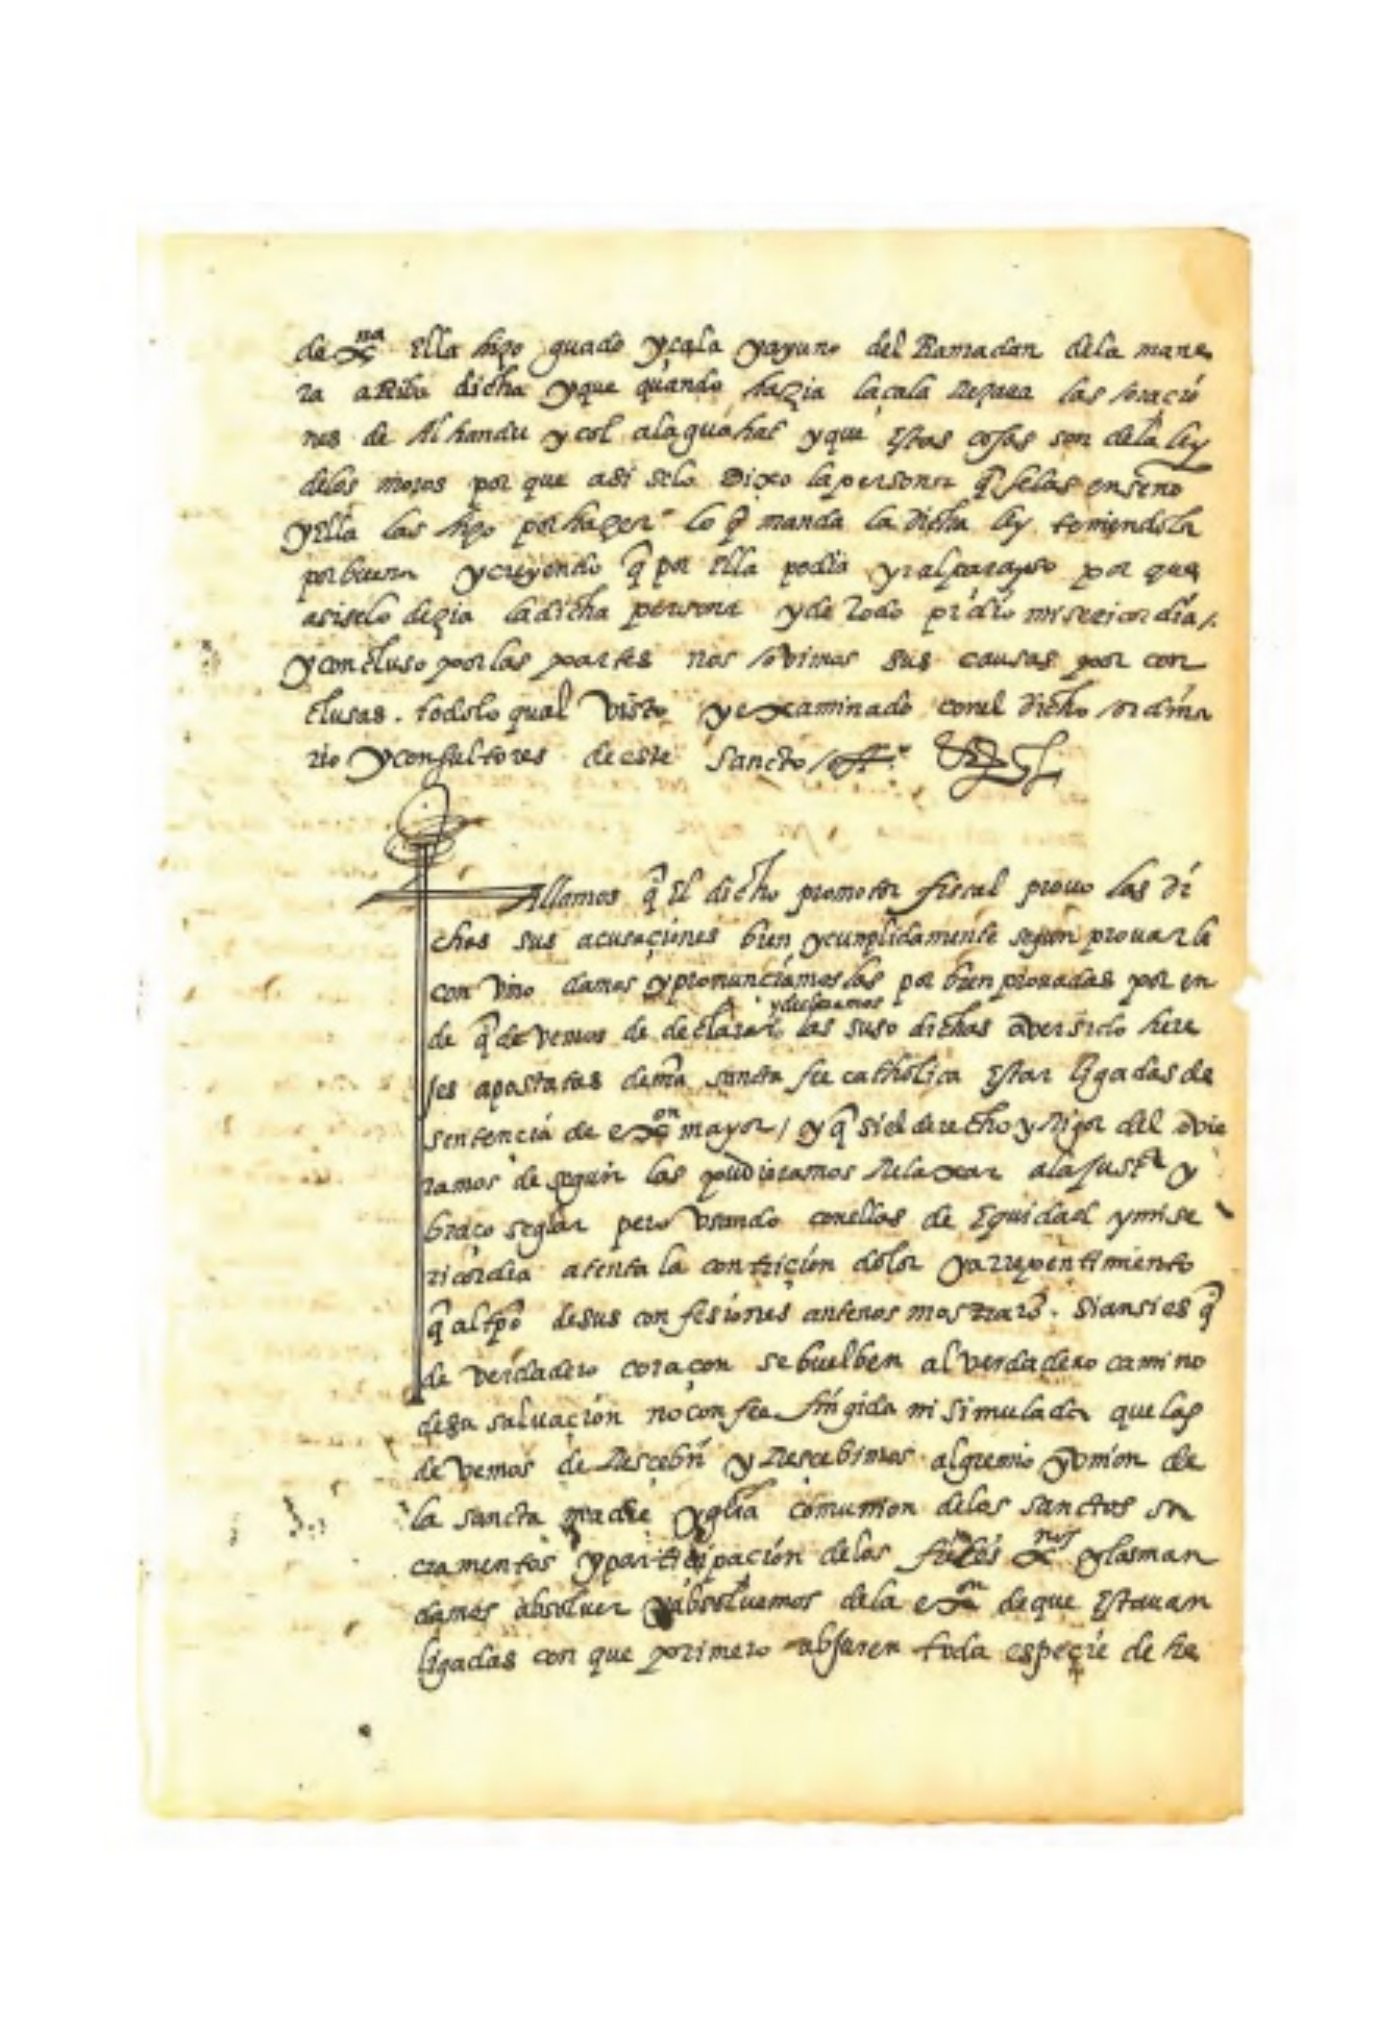 de xp̄na ella hizo guado y çala y ayuno del Ramadan dela mane
ra aRiba dicha y que quando hazia la çala Rezava las oracio
nes de Alhandu y col alaguahat y que Estas cosas son dela ley
delos moros por que asi selo Dixo la persona q̄ selas enseño
y Ella las hizo por hazer lo q̄ manda la dicha ley teniendola
por buena y creyendo q̄ por Ella podia yr al parayso por que
asi selo dezia la dicha persona y de todo pidio misericordia /
y concluso por las partes nos ovimos sus causas por con
clusas . todo lo qual visto y examinado con el dicho ordina
rio y consultores de este sancto off.º
Fallamos q̄ El dicho promotor fiscal provo las di
chas sus acusaciones bien y cumplidamente segun provar le
convino damos y pronunciamoslas por bien provadas por en
y declaramos
de q̄ devemos de declarar las suso dichas aver sido here
jes apostatas de nr̄a sancta fee catholica Estar ligadas de
sentencia de exon mayor / y q̄ si el derecho y Rigor del ovie
ramos de seguir las pudieramos Relaxar ala justª y
braço seglar pero usando con ellas de Equidad y mise
ricordia atenta la contriçion dolor y arrepentimiento
q̄ al tpō de sus confesiones ante nos mostraro . Si ansi es q̄
de verdadero coraçon se buelben al verdadero camino
de su salvaçion no con fee fingida ni simulada que las
devemos de Rescebir y Rescebimos al gremio y union de
la sancta madre yglia comunion delos sanctos sa
cramentos y participaçion delos fieles xp̄nos y las man
damos absolver y absolvemos dela exon de que Estavan
ligadas con que primero abjuren toda espeçie de he